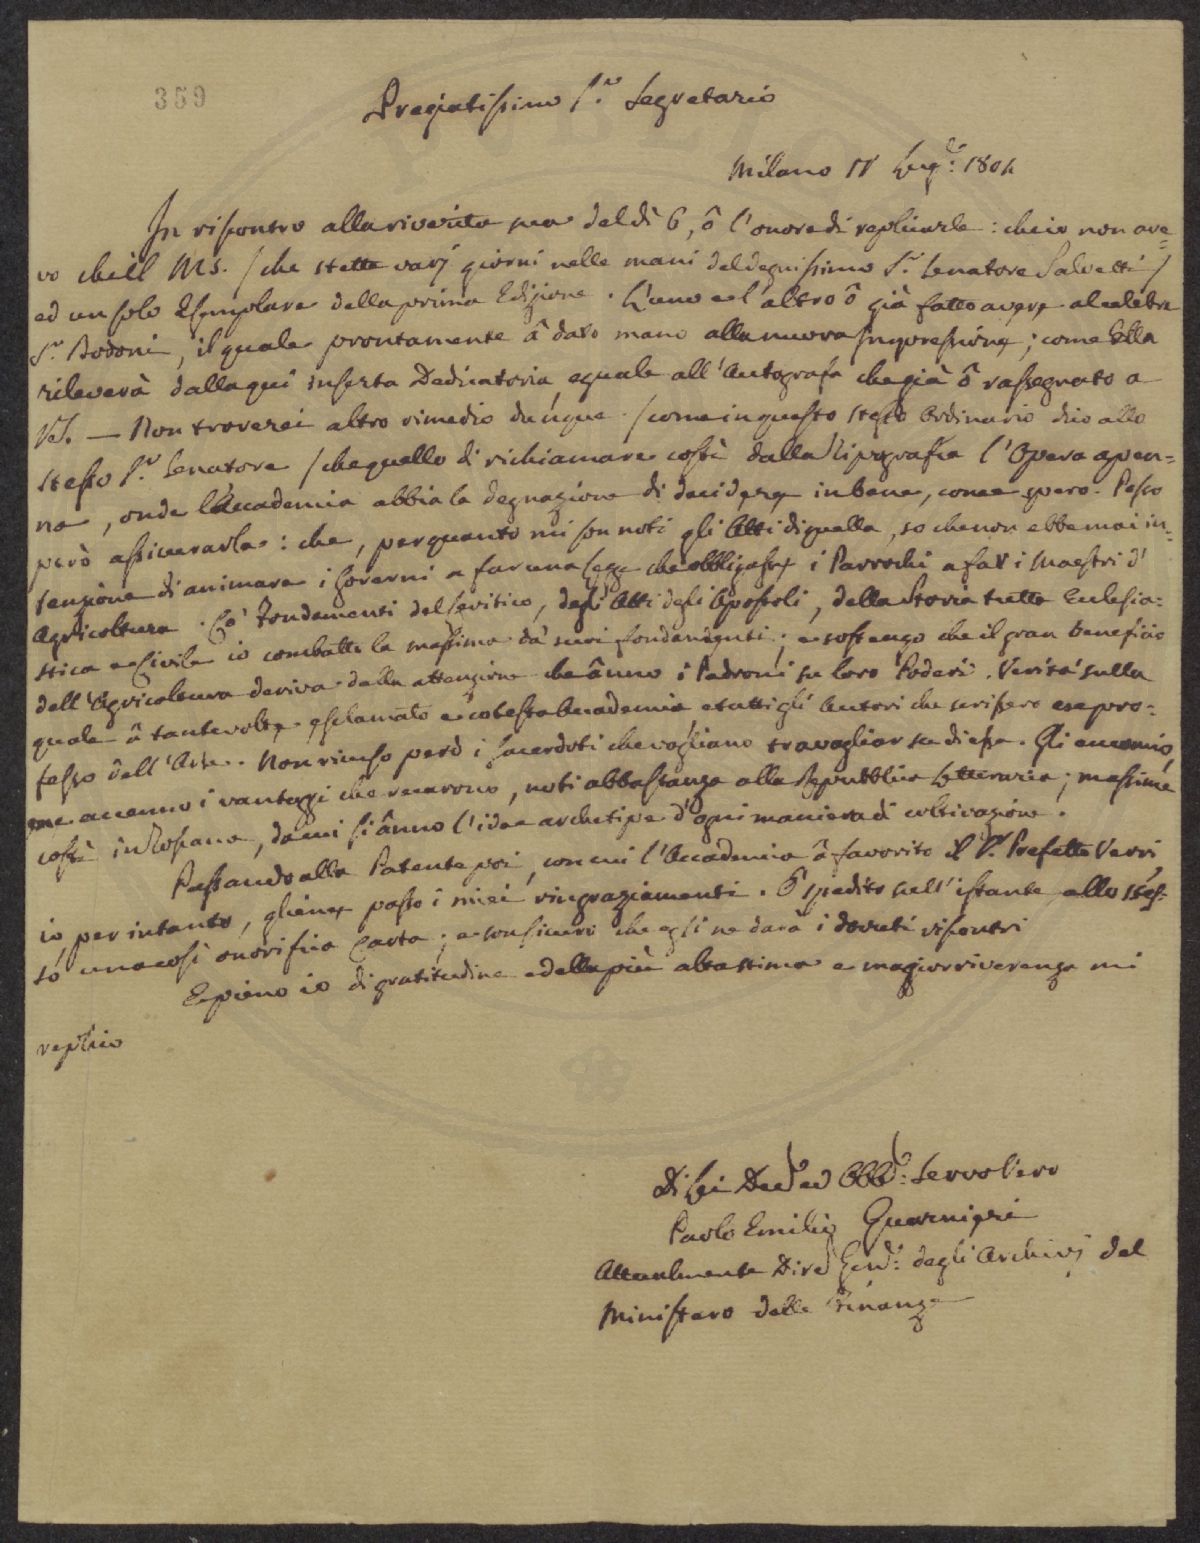 359
Pregiatissimo Sr. Segretario
Milano 11 Lug: 1804
In riscontro alla riverita sua del dì 6, ô l'onore di replicarle: che io non ave=
vo che il Ms. /che stette varj giorni nelle mani del degnissimo Sr. Senatore Salvetti/
ed un solo Esemplare della prima Edizione. L'uno e l'altro ô già fatto avere al celebre
Sr. Bodoni, il quale prontamente â dato mano alla nuova Impressione; come Ella
rileverà dalla qui inserta Dedicatoria eguale all'Autografa che già ô rassegnato a
VS. — Non troverei altro rimedio dunque /come in questo stesso Ordinario dico allo
stesso Sr. Senatore /che quello di richiamare costì dalla Tipografia l'Opera appen=
na, onde l'Accademia abbia la degnazione di decidere in bene, come spero. Posso
però assicurarla: che, per quanto mi son noti gli Atti di quella, so che non ebbe mai in=
tenzione di animare i Governi a far una legge che obbligasse i Parrochi a far i Maestri d'
Agricoltura. Co' Fondamenti del Levitico, degli Atti degli Apostoli, della Storia tutta Ecclesia=
stica e Civile io combatto la massima da' suoi fondamenti; e sostengo che il gran beneficio
dell'Agricoltura deriva dalla attenzione che ânno i Padroni su loro Poderi. Verità sulla
quale â tante volte esclamato e cotesta Accademia e tutti gli Autori che scrissero ex pro=
fesso dell'Arte. Non ricuso però i Sacerdoti che vogliano travagliar su di essa. Gli encomio,
ne accenno i vantaggi che recarono, noti abbastanza alla Repubblica Letteraria; massime
costì in Toscana, da cui si ânno l'idea archetipa d'ogni maniera di coltivazione.
Passando alla Patente poi, con cui l'Accademia â favorito il Sr. Prefetto Verri,
io, per intanto, gliene posso i miei ringraziamenti. Ô spedito sull'istante allo stes=
so una così onorifica Carta; e son sicuro che egli ne darà i dovuti riscontri
E pieno io di gratitudine e della più alta stima e maggior riverenza mi
replico
Di Lei Devo ed Obbmo: Servo Vero
Paolo Emilio Guarnieri
Attualmente Dire Gene: degli Archivj del
Ministero delle Finanze